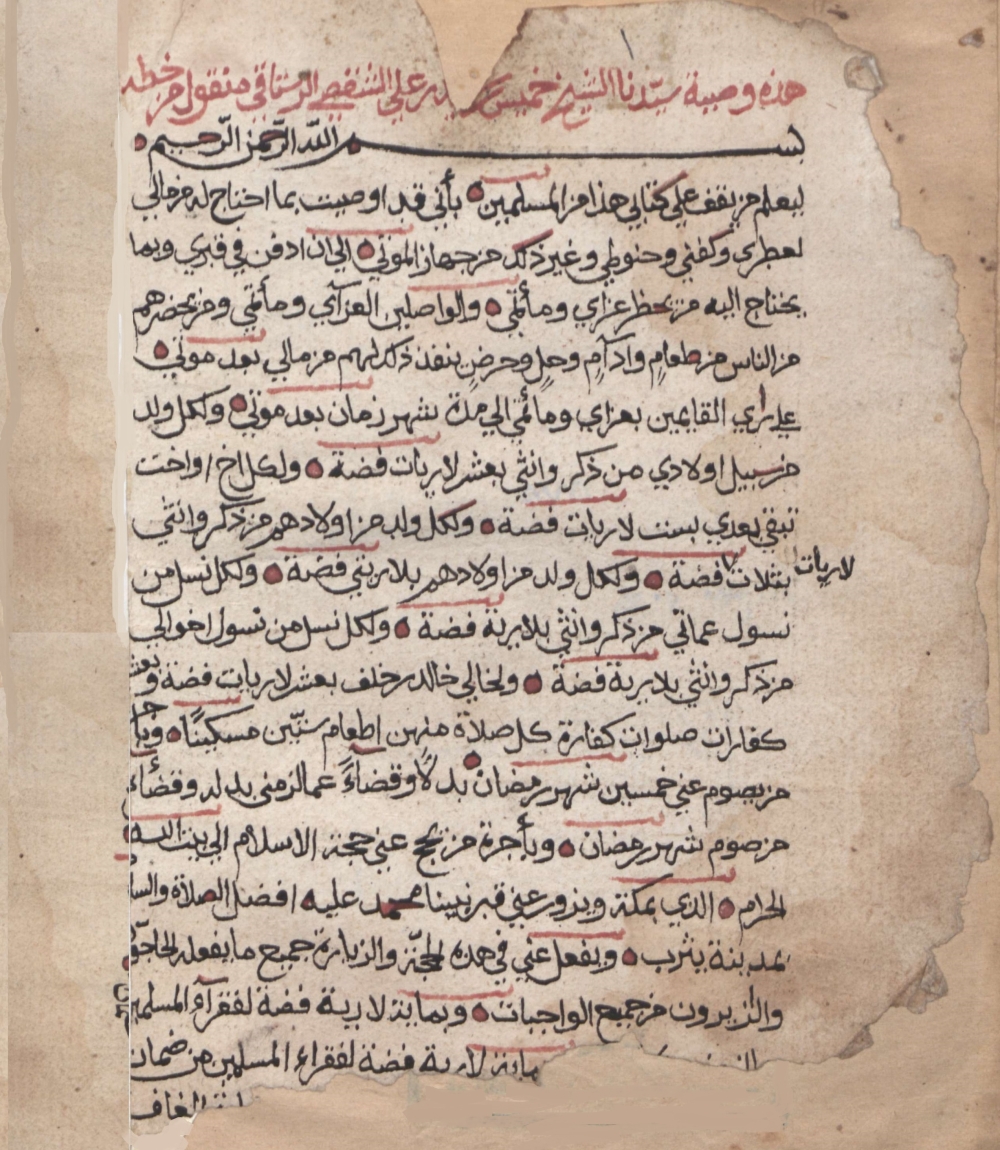 هذه وصية سيدنا الشيخ خميس بن سعيد بن علي الشقصي الرستاقي منقول من خطه
بسم الله الرحمن الرحيم
ليعلم من يقف على كتابي هذا من المسلمين بأني قد اوصيت بما احتاج له من مالي
لعطري وكفني وحنوطي وغير ذلك من جهاز الموتى الى ان ادفن في قبري وبما
يحتاج اليه من يحظر عزاي ومأتمي والواصلين العزآي ومأتمي ومن يحضرهم
من الناس من طعامٍ وادآمٍ وحلٍ وحرضٍ ينفذ ذلك لهم من مالي بعد موتي
على رأي القايمين بعزاي ومأتمي الي مدة شهر زمان بعد موتي ولكل ولد
من سبيل اولادي من ذكر وانثى بعشر لاريات فضة ولكل اخ او اخت
تبقى بعدي بست لاريات فضة ولكل ولد من اولادهم من ذكر وانثى
بثلاث لاريات فضة ولكل ولد من اولادهم بلاريتي فضة ولكل نسل من
نسول عماتي من ذكر وانثى بلارية فضة ولكل نسل من نسول اخوالي
من ذكر وانثى بلارية فضة ولخالي خالد بن خلف بعشر لاريات فضة وبعشر
كفارات صلوات كفارة كل صلاة منهن اطعام ستين مسكينًا وبأجرة
من يصوم عني خمسين شهر رمضان بدلًا وقضاءً عما لزمني بدله وقضاءه
من صوم شهر رمضان وبأجرة من يحج عني حجة الاسلام الى بيت الله
الحرام الذي بمكة ويزور عني قبر نبينا محمد عليه افضل الصلاة والسلام
بمدينة يثرب ويفعل عني في هذه الحجة والزيارة جميع ما يفعله الحاجون
والزايرون من جميع الواجبات وبماية لارية فضة لفقرآء المسلمين
ماية لارية فضة لفقراء المسلمين من ضمان
الغاف